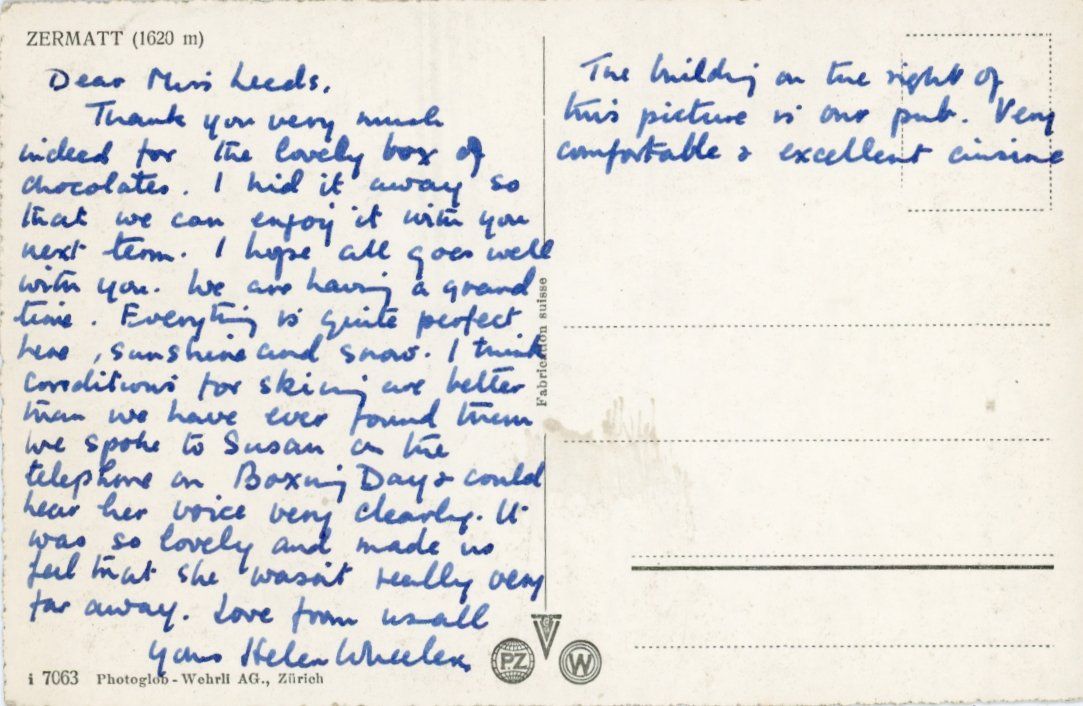 ZERMATT (1620 m)
Dear Miss Leeds,
Thank you very much
indeed for the lovely box of
chocolates. I hid it away so
that we can enjoy it with you
next term. I hope all goes well
with you. We are having a grand
time. Everything is quite perfect
here, sunshine and snow. I think
conditions for skiing are better
than we have ever found them
We spoke to Susan on the
telephone on Boxing Day & could
hear her voice very clearly. It
was so lovely and made us
feel that she wasn't really very
far away. Love from us all
Yours Helen Wheeler
The building on the right of
this picture is our pub. Very
comfortable & excellent cuisine
Fabrication suisse
i 7063 Photoglob-Wehrli AG., Zürich
PZ
W